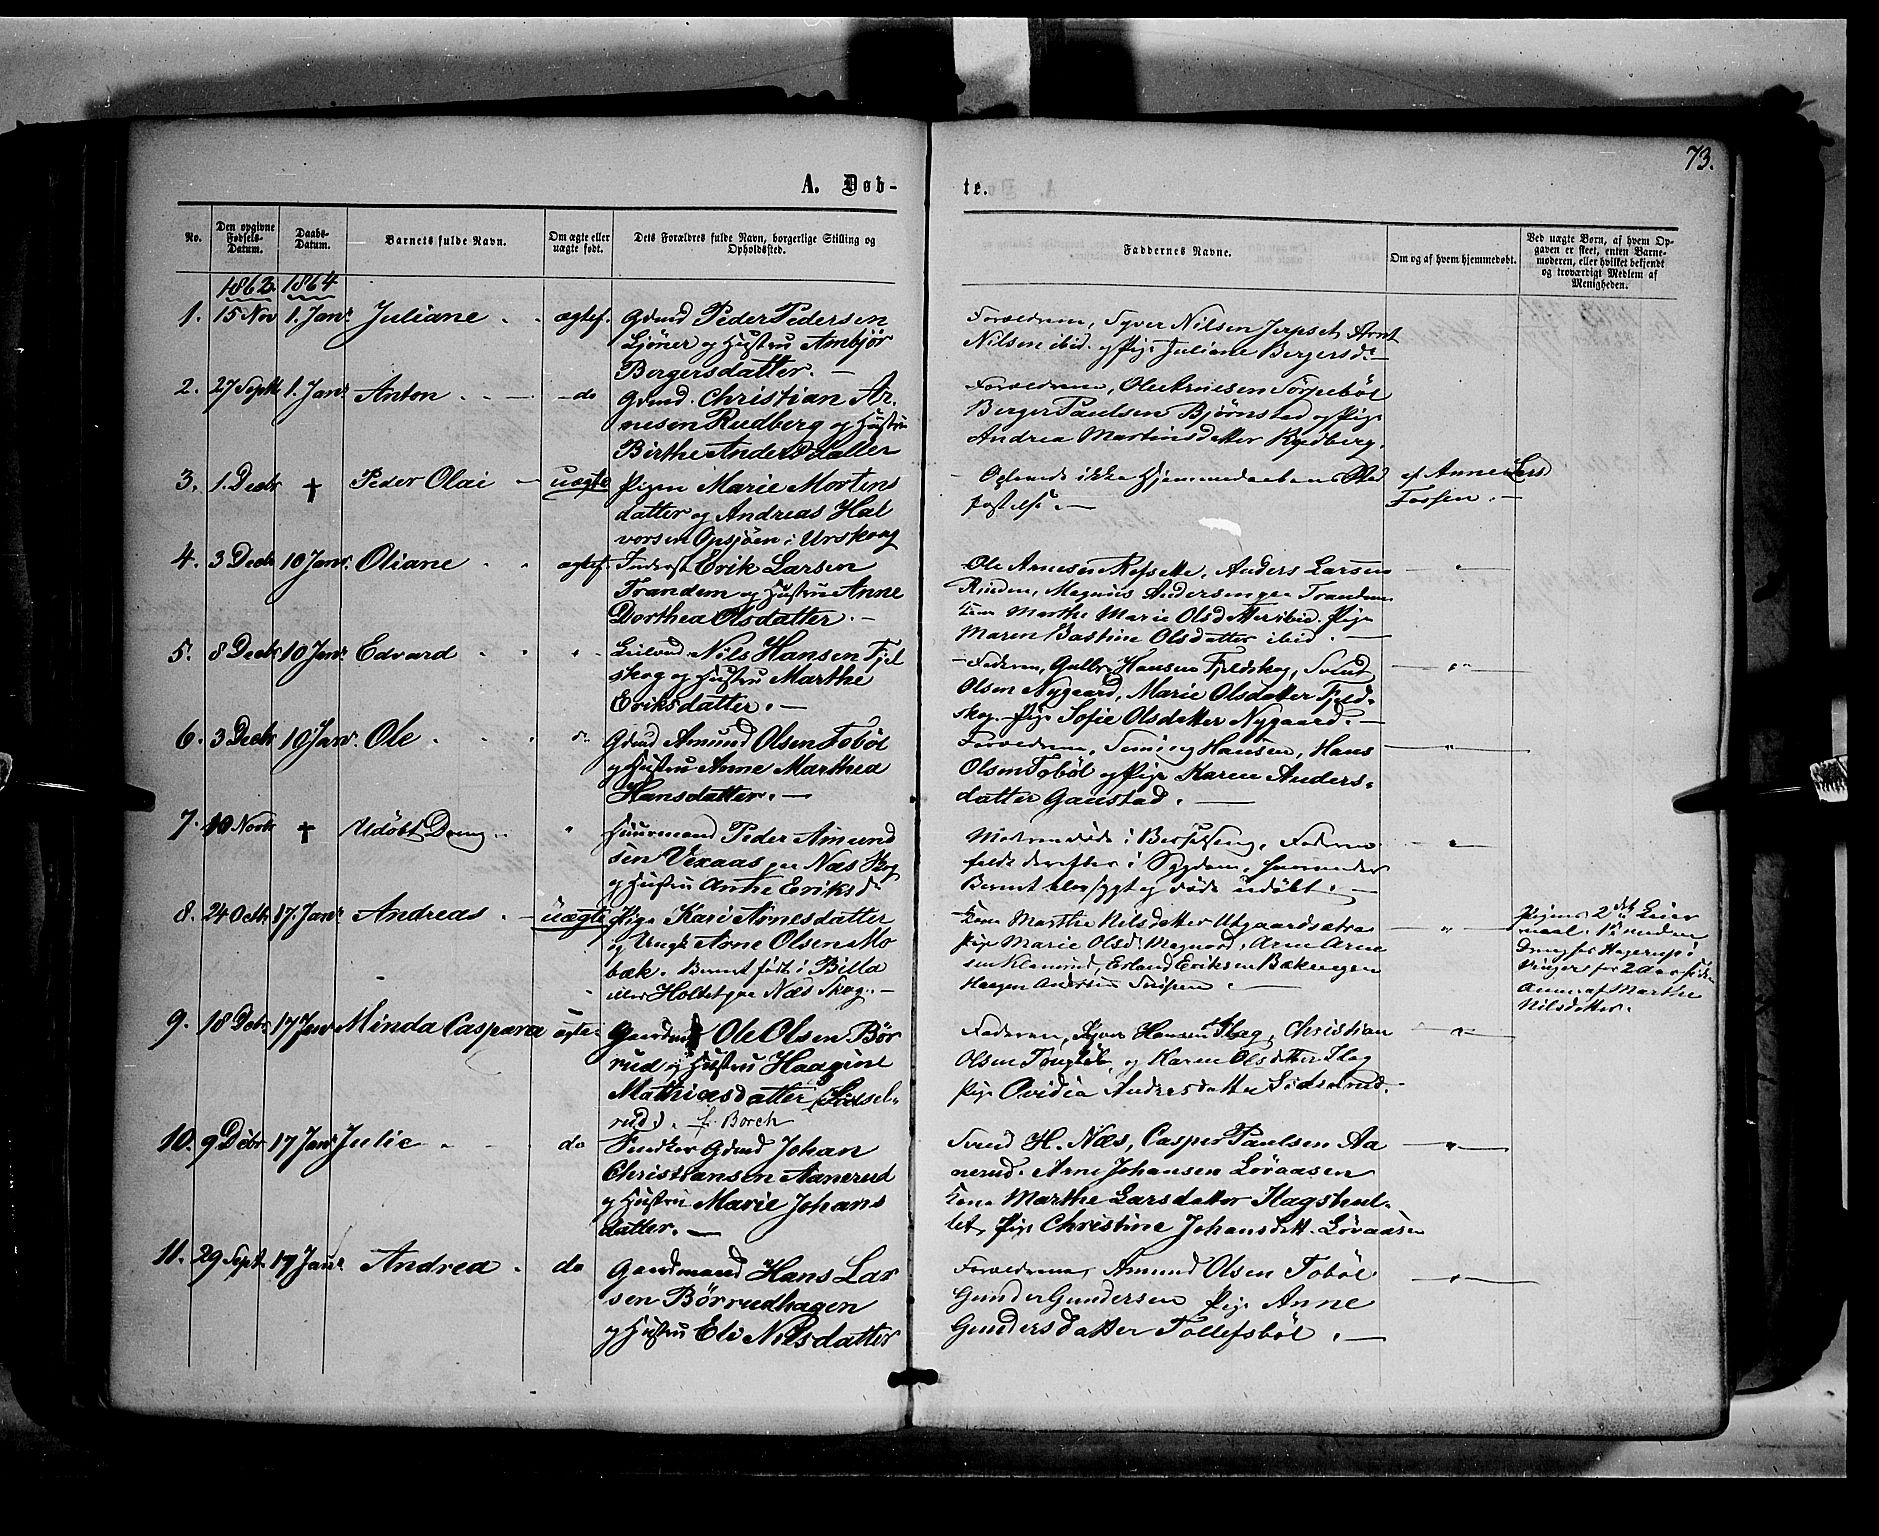 73.
A. Døb-
te.
No.
Den opgivne Fødsels-Datum.
Daabs-Datum.
Barnets fulde Navn.
Om ægte eller uægte født.
Dets Forældres fulde Navn, borgerlige Stilling og Opholdssted.
Faddernes Navne.
Om og af hvem hjemmedøbt.
Ved uægte Børn, af hvem Opgaven er skeet, enten Barnemoderen, eller hvilket bekjendt og troværdigt Medlem af Menigheden.
1863 1864
1. 15 Nov 1. Janr Juliane ægtef. Grmd Peder Pedersen
Ljøner og Hustru Ambjør
Bergersdatter. —
Forældrene, Syver Nilsen Jerpset, Arnt
Nilsen ibid. og Pige Juliane Bergersd.
2. 27 Septb 1. Janr Anton do Grmd. Christian Ar-
nesen Rudberg og Hustru
Birthe Andersdatter
Forældrene, Ole Arnesen Torpebøl
Berger Paulsen Bjørnstad og Pige
Andrea Martinsdatter Rudberg.
3. 1. Decbr † Peder Olai uægte Pigen Marie Mortens
datter og Andreas Hal
vorsen Opsjøen i Urskoug
ikke Hjemmedaabens Stad
fæstelse. —
af Anne Lars
Fossen. —
4. 3 Decbr 10 Janr. Oliane ægtef. Inderst Erik Larsen
Trandem og Hustru Anne
Dorthea Olsdatter. —
Ole Arnesen Refsette, Anders Larsen
Rinden, Magnus Andersen Trandem
Kone Marthe Marie Olsdatter ibid. Pige
Maren Bastine Olsdatter ibid. —
5. 8 Decbr 10 Janr Edvard " Leilænd. Nils Hansen Fjel
skog og Hustru Marthe
Eriksdatter. —
Faderen, Gulbr. Hansen Fjeldskog, Svend
Olsen Nygaard, Marie Olsdatter Fjeld-
skog. Pige Sofie Olsdatter Nygaard. —
6. 3 Decbr 10 Janr. Ole " Grmd Amund Olsen Tobøl
og Hustru Anne Marthea
Hansdatter. —
Forældrene, Hansen, Hans
Olsen Tobøl og Pige Karen Anders-
datter Gaustad. —
7. 10 Novbr † Udøbt Dreng " Huusmand Peder Amund
sen Vexaas paa Næs Skog
og Hustru Anne Eriksd.
Moderen døde i Barselseng, Faderen
faldt derefter i Sygdom, hvorunder
Barnet blev sygt og døde udøbt. —
8. 24 Octbr 17. Janr Andreas uægte Pige Kari Arnesdatter
og Ungk. Arne Olsen Mo
bæk. Barnet født i Billa
eller Holtet paa Næs Skog. —
Kone Marthe Nilsdatter Utgaardsætra
Pige Marie Olsd. Magnord, Arne Arne
sen Klemmd, Erland Eriksen Bækengen
Haagen Andersen —
Pigens 2det Leier
maal. 1te med en
Dreng fra Hagerup i
Vinger for 2 Aar siden
Anm. af Marthe
Nilsdatter.
9. 18 Dcbr 17 Janr Minda Caspara ægte Gaardmd Ole Olsen Bør
rud og Hustru Haagine
Mathiesdatter (Lodsel-
rud). f. Borch
Faderen, Syver Hansen Flag, Christian
Olsen og Karen Olsdatter Flag
Pige Ovidia Andersdatter
10. 9 Dcbr 17 Janr Julie do Snedker Grmd Johan
Christiansen Aanerud
og Hustru Marie Johans
datter. —
Svend H. Næs, Casper Paulsen Aa
nerud. Arne Johansen Løvaasen
Kone Marthe Larsdatter Flagshul-
let, Pige Christine Johansdatt. Løvaasen
11. 29 Septb. 17 Janr Andrea do Gaardmand Hans Lar
sen Børrudhagen
og Hustru Eli Nilsdatter
Forældrene, Amund Olsen Tobøl
Gunder Gundersen Pige Anne
Gundersdatter Tollefsbøl. —